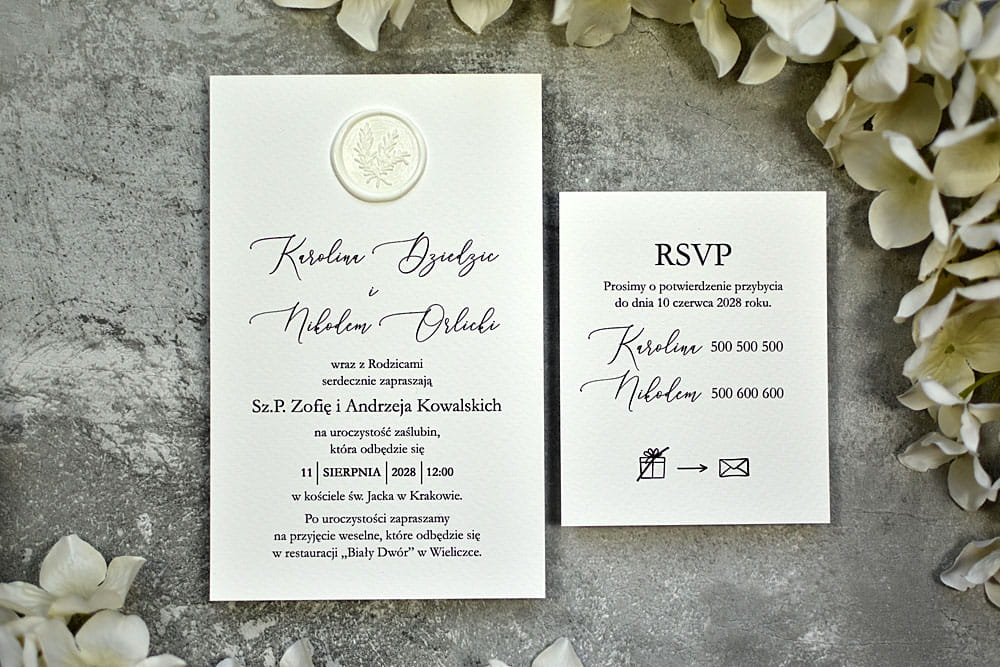 Karolina Dziedzic
i
Nikodem Orlicki
wraz z Rodzicami
serdecznie zapraszają
Sz.P. Zofię i Andrzeja Kowalskich
na uroczystość zaślubin,
która odbędzie się
11 | SIERPNIA | 2028 | 12:00
w kościele św. Jacka w Krakowie.
Po uroczystości zapraszamy
na przyjęcie weselne, które odbędzie się
w restauracji „Biały Dwór” w Wieliczce.
RSVP
Prosimy o potwierdzenie przybycia
do dnia 10 czerwca 2028 roku.
Karolina 500 500 500
Nikodem 500 600 600